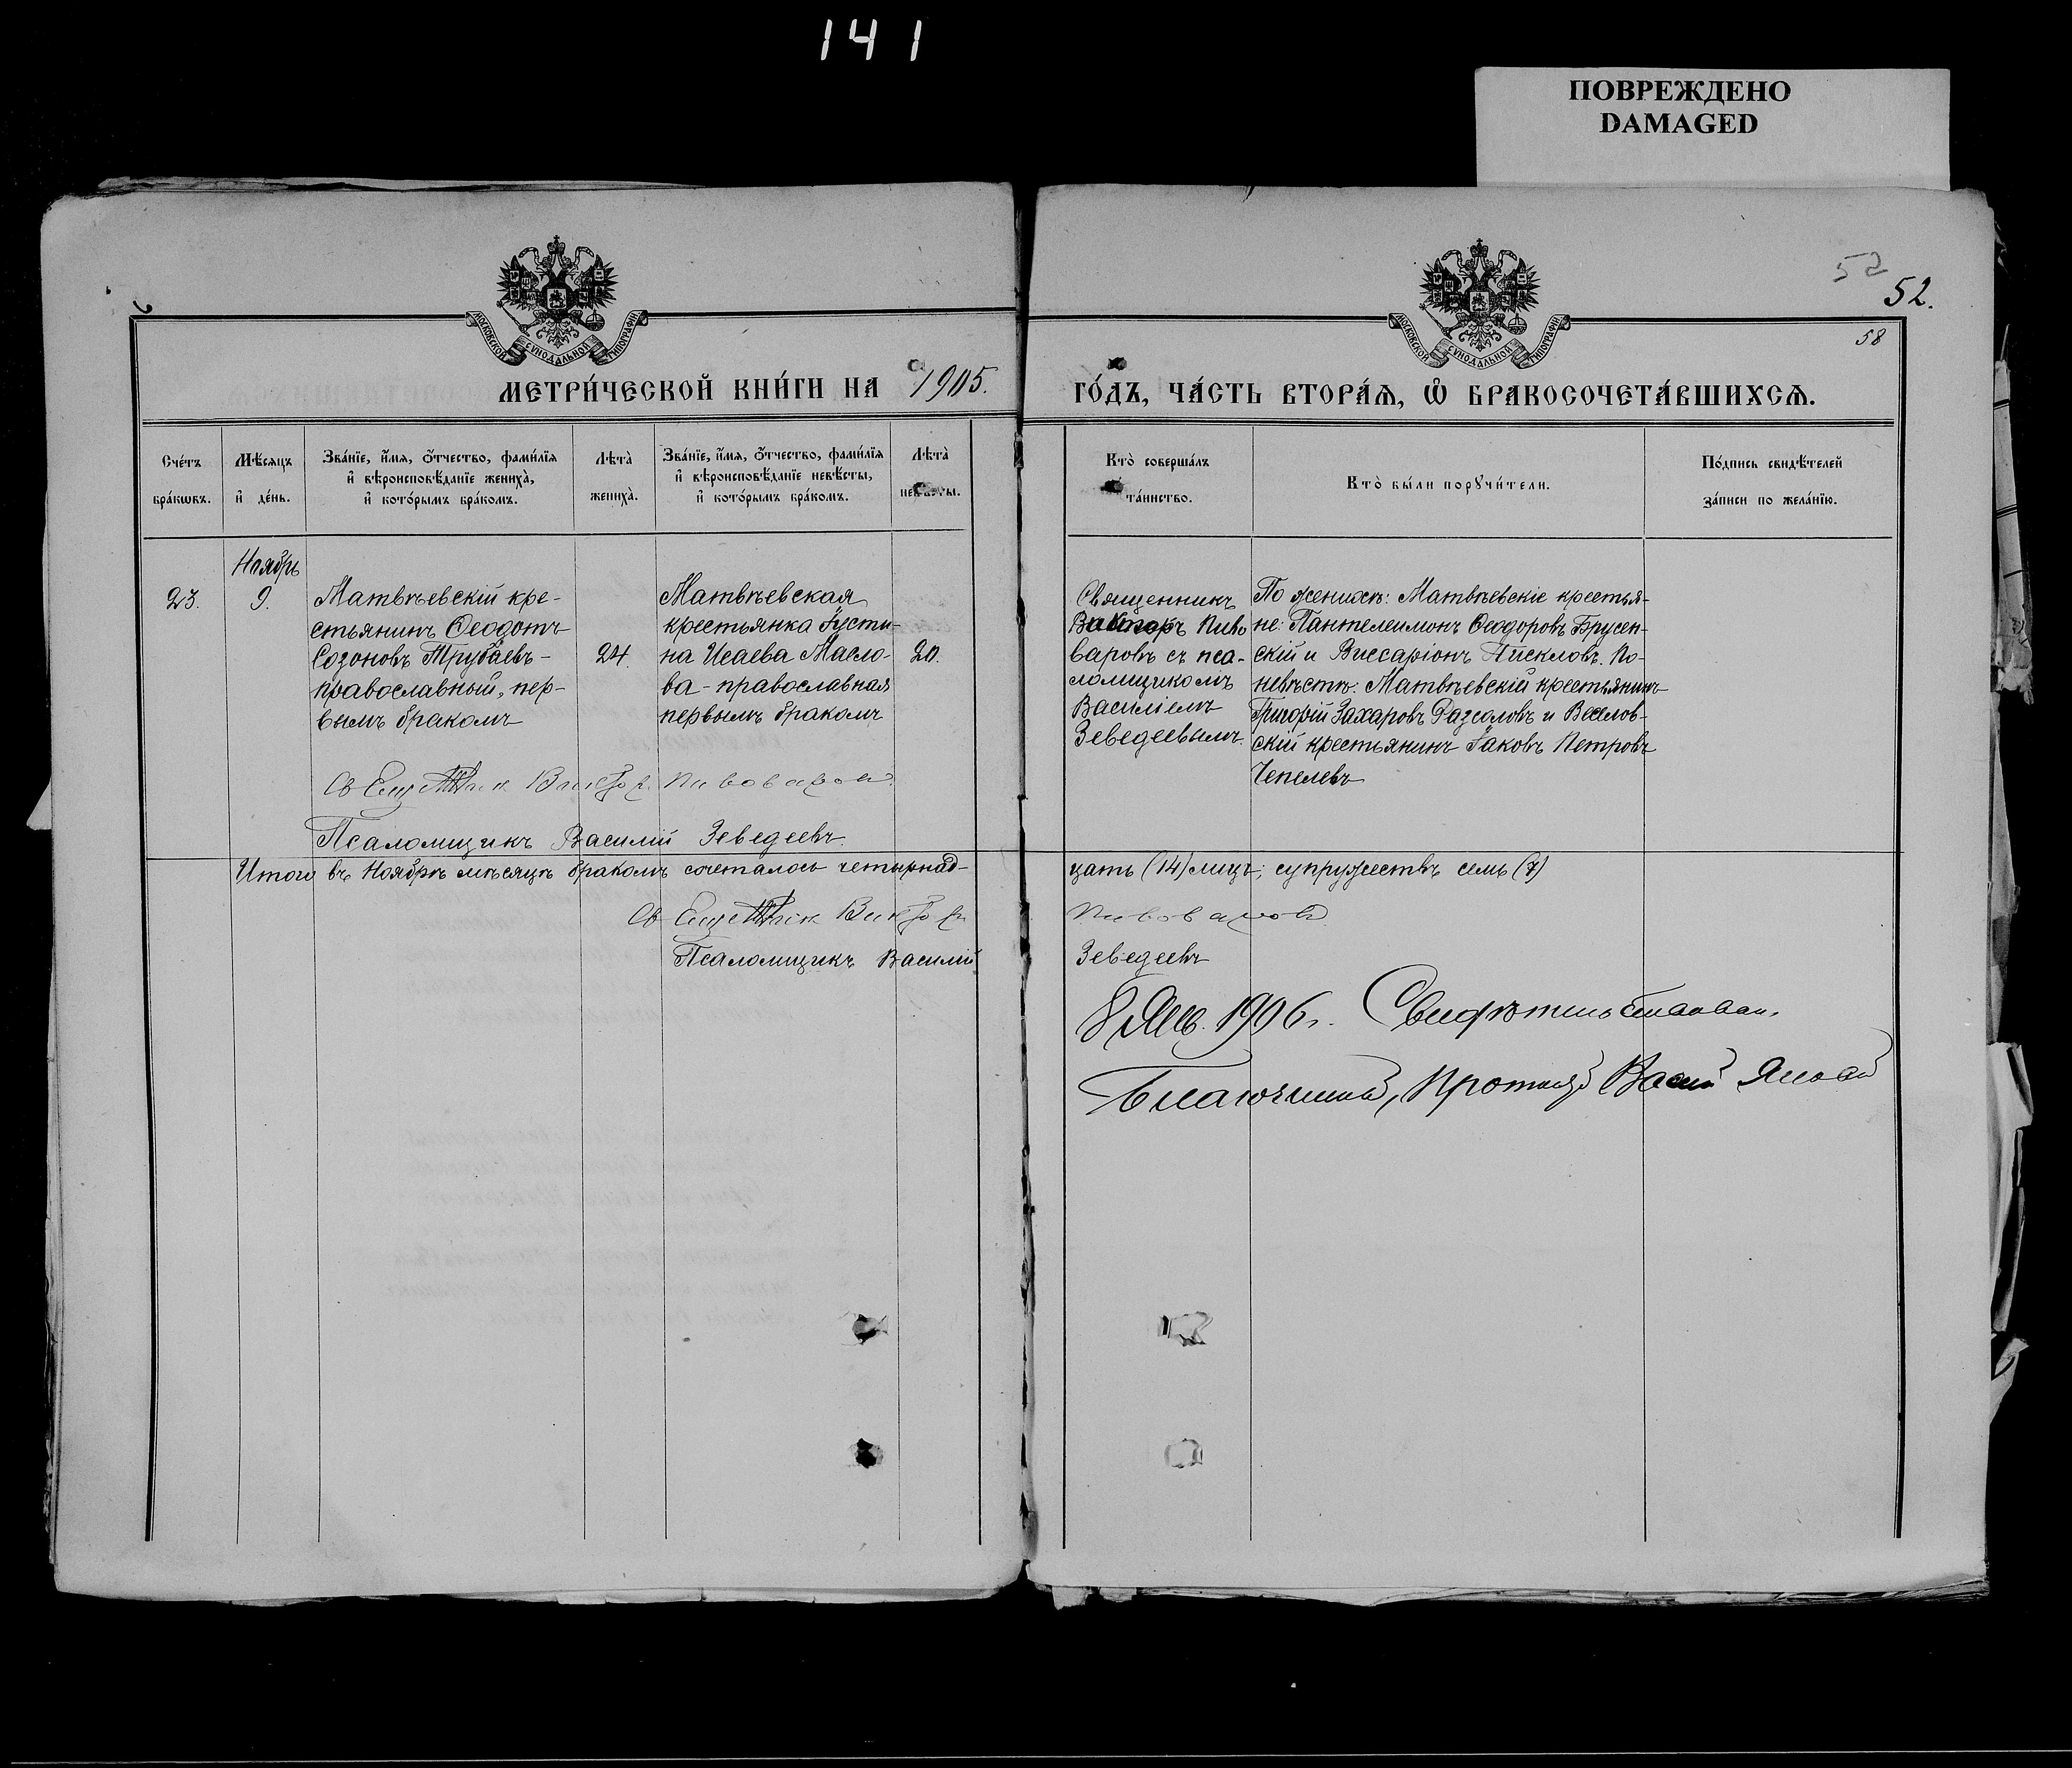 141
ПОВРЕЖДЕНО
DAMAGED
52
52.
58
МОСКОВСКОЙ СѴНОДАЛЬНОЙ ТИПОГРАФІИ
МОСКОВСКОЙ СѴНОДАЛЬНОЙ ТИПОГРАФІИ
МЕТРИ́ЧЕСКОЙ КНИ́ГИ НА 1905. ГО́ДЪ, ЧА́СТЬ ВТОРА́Ѧ, Ѡ҆ БРАКОСОЧЕТА́ВШИХСѦ.
Сче́тъ
бра́кωвъ.
Мѣ́сяцъ
и҆ де́нь.
Зва́нїе, и҆́мя, о҆́тчество, фами́лїя
и҆ вѣроисповѣ́данїе жениха̀,
и҆ кото́рымъ бра́комъ.
Лѣта̀
жениха̀.
Зва́нїе, и҆́мя, о҆́тчество, фами́лїя
и҆ вѣроисповѣ́данїе невѣ́сты,
и҆ кото́рымъ бра́комъ.
Лѣта̀
невѣ́сты.
Кто̀ соверша́лъ
та́инство.
Кто̀ бы́ли порꙋчи́тели.
По́дпись свидѣ́телей
за́писи по жела́нїю.
Ноябрь
23.
9.
Матвѣевскій кре-
стьянинъ Ѳеодотъ
Созоновъ Трубаевъ-
православный, пер-
вымъ бракомъ
24.
Матвѣевская
крестьянка Іусти-
на Исаева Масло-
ва - православная
первымъ бракомъ
20.
Священникъ
Викторъ Пиво
варовъ съ пса-
ломщикомъ
Василіемъ
Зеведеевымъ.
По женихѣ: Матвѣевскіе крестья-
не: Пантелеимонъ Ѳеодоровъ Брусен-
скій и Виссаріонъ Пискловъ. По-
невѣстѣ: Матвѣевскій крестьянинъ
Григорій Захаровъ Разсоловъ и Веселов-
скій крестьянинъ Іаковъ Петровъ
Чепелевъ
Священник Виктор Пивоваров
Псаломщикъ Василій Зеведеевъ.
Итого въ Ноябрѣ мѣсяцѣ бракомъ сочеталось четырнад-
цать (14) лицъ; супружествъ семь (7)
Священник Виктор Пивоваров
Псаломщикъ Василій Зеведеевъ
8 Янв. 1906 г. Свидѣтельствовал.
Благочинный, Протоіер